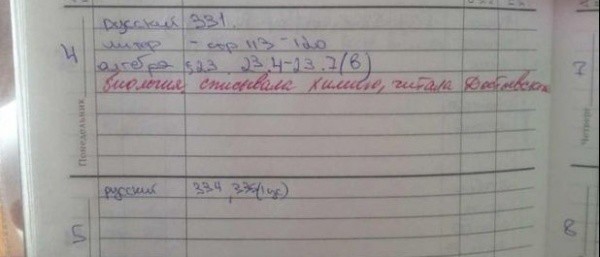 4
русский 331.
литер - стр 113-120
алгебра §23 23.4-23.7(в)
биология списывала химию, читала Достоевского
Понедельник
русский 334, 335(1 ус)
5
7
Четверг
8